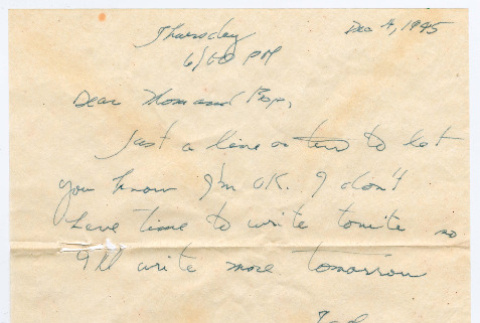 Thursday
Dec 4, 1945
6/00 PM
Dear Mom and Pop,
Just a line or two to let
you know I'm OK. I don't
have time to write tonite so
I'll write more tomorrow